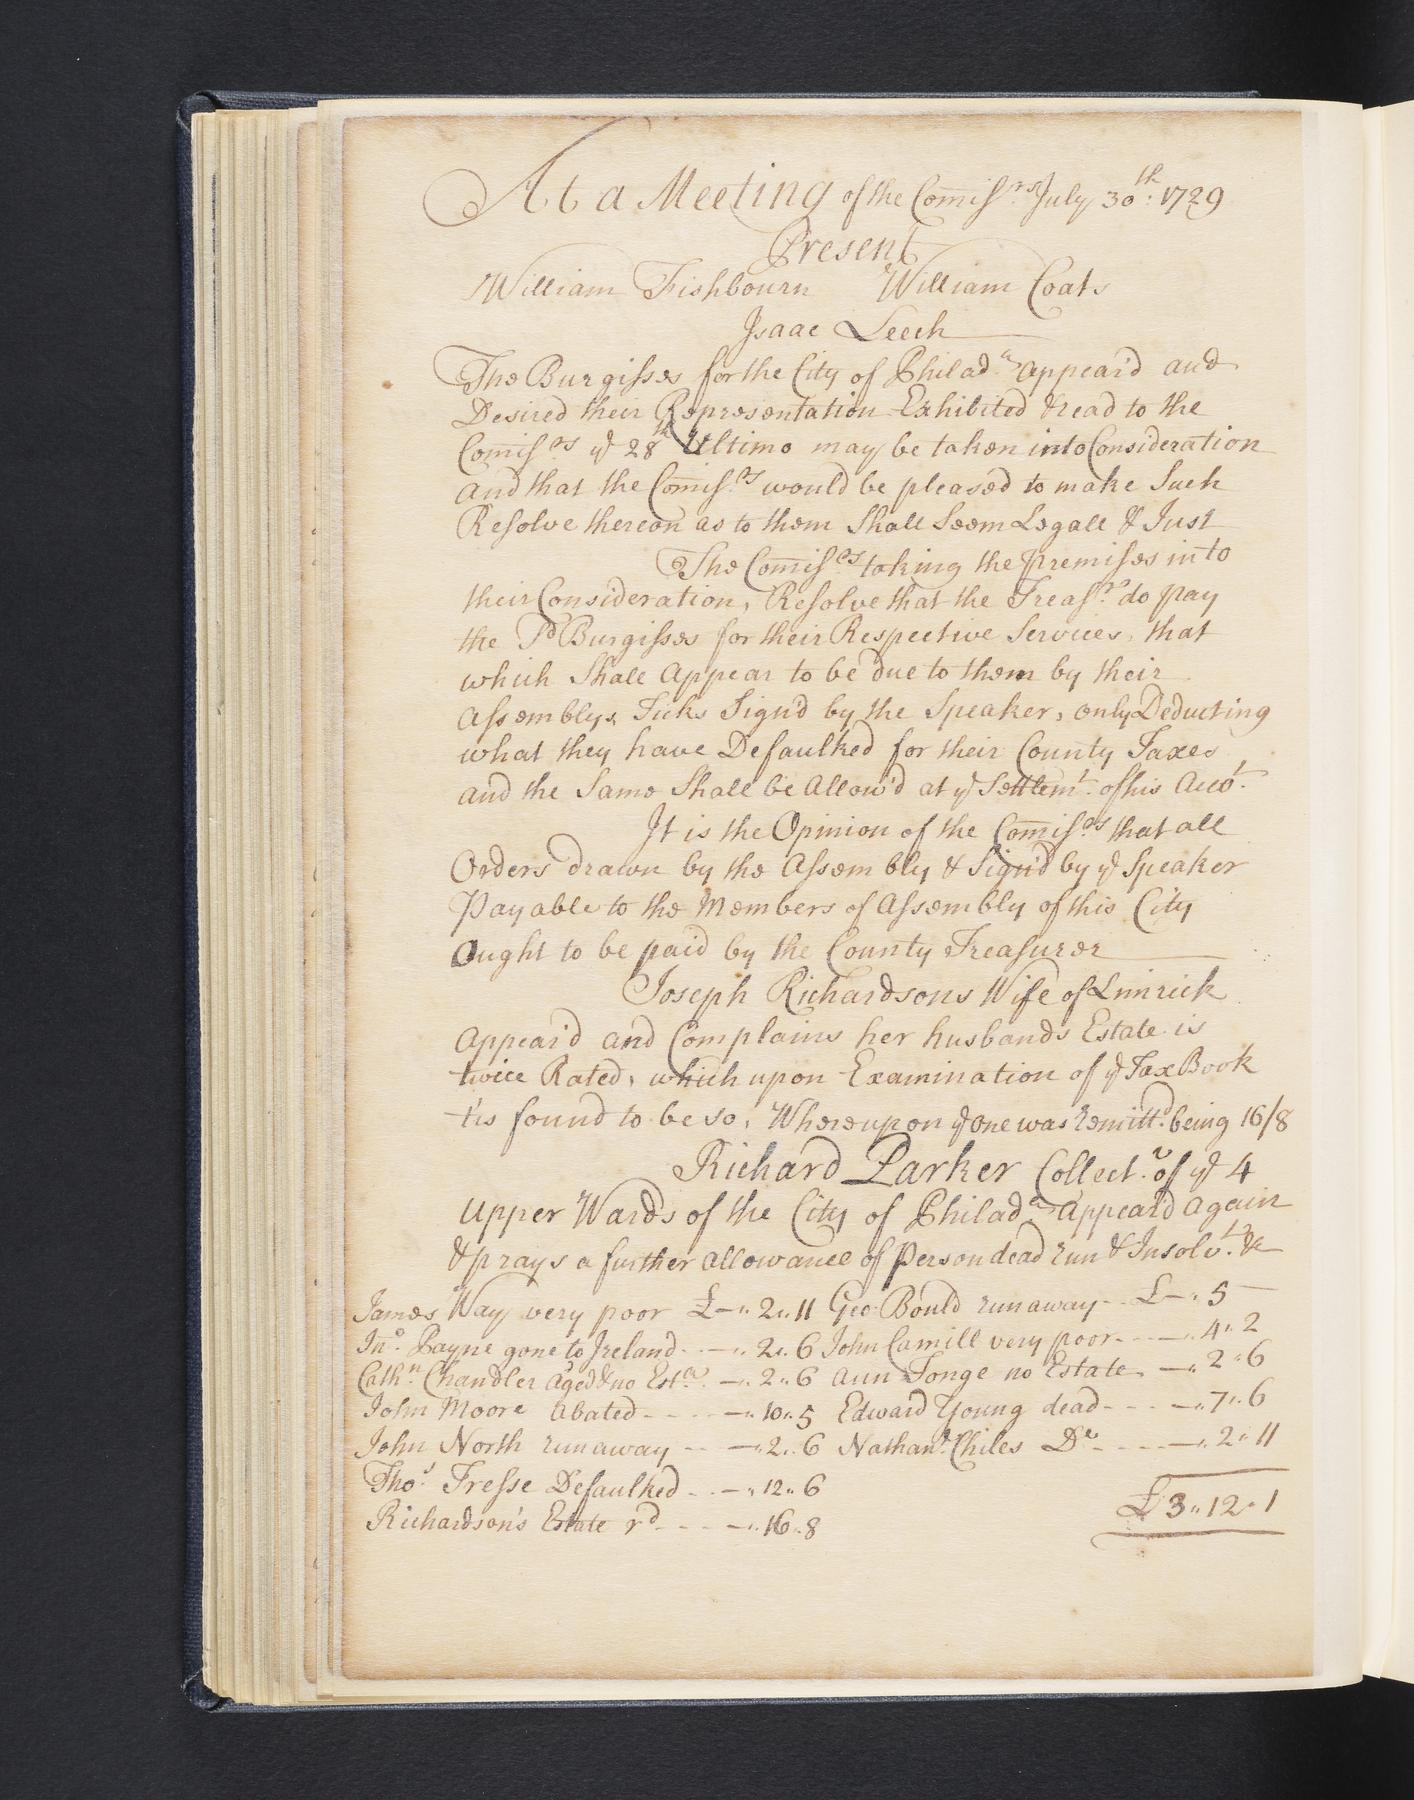 At a Meeting of the Com̄iss.rs July 30th: 1729
Present
William Fishbourn William Coats
Isaac Leech
The Burgisses for the City of Philad.a appear'd and
Desired their Representation Exhibited & read to the
Com̄iss.os ye 28th Ultimo may be taken into Consideration
and that the Com̄iss.os would be pleased to make Such
Resolve thereon as to them Shall Seem Legall & Just
The Com̄iss.os taking the premisses into
their Consideration, Resolve that the Treas.r do pay
the Sd Burgisses for their Respective Services, that
which Shall Appear to be due to them by their
Assemblys Ticks Sign'd by the Speaker, only Deducting
what they have Defaulked for their County Taxes
and the Same Shall be Allow'd at ye Settlem.t of his Acco.t
It is the Opinion of the Com̄iss.os that all
Orders drawn by the Assembly & Sign'd by ye Speaker
Payable to the Members of Assembly of this City
Ought to be paid by the County Treasurer
Joseph Richardsons Wife of Limrick
Appear'd and Complains her husbands Estate is
twice Rated, which upon Examination of ye Tax Book
t'is found to be so, Whereupon ye one was remitt.d being 16/8
Richard Parker Collect.r of ye 4
Upper Wards of the City of Philad.a Appear'd Again
& prays a further allowance of Person dead run & Insolv.ts &c
James Way very poor £-"2"11 Geo: Bould runaway £-"5-
Jn.o Payne gone to Ireland -"2"6 John Camill very poor -"4"2
Cath.n Chandler Aged & no Est.a -"2"6 Ann Tonge no Estate -"2"6
John Moore Abated -"10"5 Edward Young dead -"7"6
John North runaway -"2"6 Nathan.l Chiles D.o -"2"11
Tho.s Tresse Defaulked -"12"6
Richardson's Estate rd -"16"8 £3"12"1